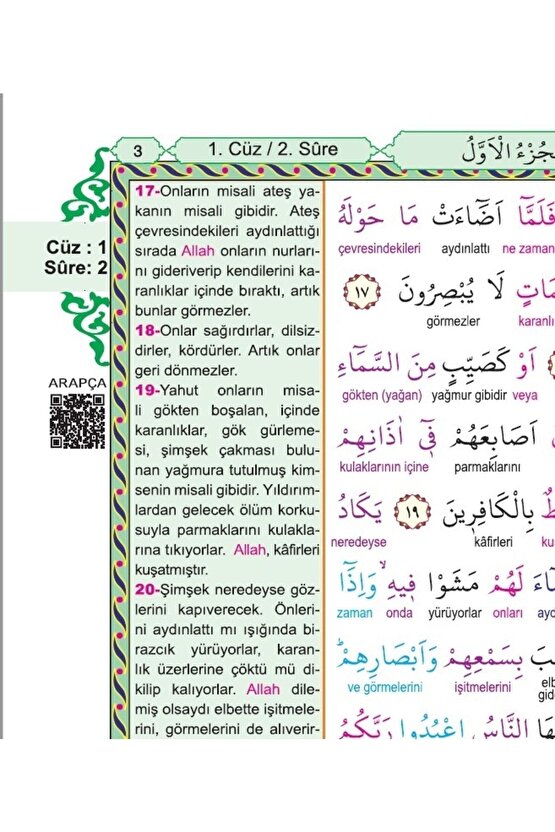 3
1. Cüz / 2. Sûre
اَلْاَوَّلُ
Cüz : 1
Sûre: 2
ARAPÇA
17-Onların misali ateş ya-
kanın misali gibidir. Ateş
çevresindekileri aydınlattığı
sırada Allah onların nurları-
nı gideriverip kendilerini ka-
ranlıklar içinde bıraktı, artık
bunlar görmezler.
18-Onlar sağırdırlar, dilsiz-
dirler, kördürler. Artık onlar
geri dönmezler.
19-Yahut onların misa-
li gökten boşalan, içinde
karanlıklar, gök gürleme-
si, şimşek çakması bulu-
nan yağmura tutulmuş kim-
senin misali gibidir. Yıldırım-
lardan gelecek ölüm korku-
suyla parmaklarını kulakla-
rına tıkıyorlar. Allah, kâfirleri
kuşatmıştır.
20-Şimşek neredeyse göz-
lerini kapıverecek. Önleri-
ni aydınlattı mı ışığında bi-
razcık yürüyorlar, karan-
lık üzerlerine çöktü mü di-
kilip kalıyorlar. Allah dile-
miş olsaydı elbette işitmele-
rini, görmelerini de alıverir-
فَلَمَّٓا اَضَٓاءَتْ مَا حَوْلَهُ
çevresindekileri aydınlattı ne zaman
لَا يُبْصِرُونَ ﴿١٧﴾
görmezler karanlı
اَوْ كَصَيِّبٍ مِنَ السَّمَٓاءِ
gökten (yağan) yağmur gibidir veya
اَصَابِعَهُمْ فٖٓي اٰذَانِهِمْ
kulaklarının içine parmaklarını
بِالْكَافِرٖينَ ﴿١٩﴾ يَكَادُ
neredeyse kâfirleri ku
لَهُمْ مَشَوْا فٖيهِۙ وَاِذَٓا
zaman onda yürüyorlar onları ayd
بِسَمْعِهِمْ وَاَبْصَارِهِمْۜ
ve görmelerini işitmelerini elb
gid
النَّاسُ اعْبُدُوا رَبَّكُمُ